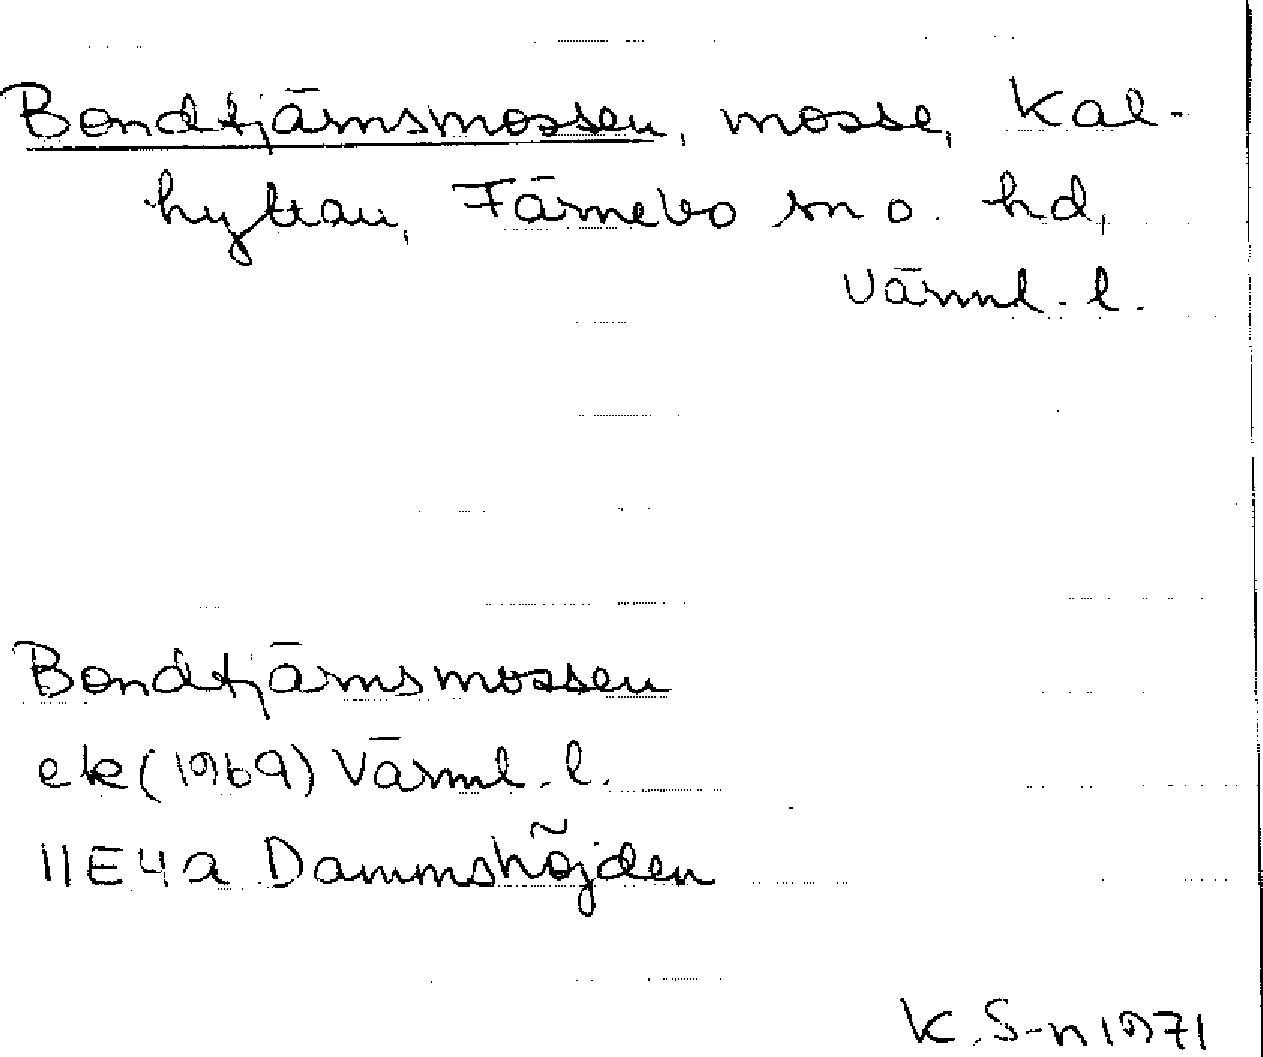 Bondtjärnsmossen, mosse, Kal-
hyttan, Färnebo sn o. hd,
Värml. l.
Bondtjärnsmossen
ek (1969) Värml. l.
11E4a Dammshöjden
K. S-n 1971